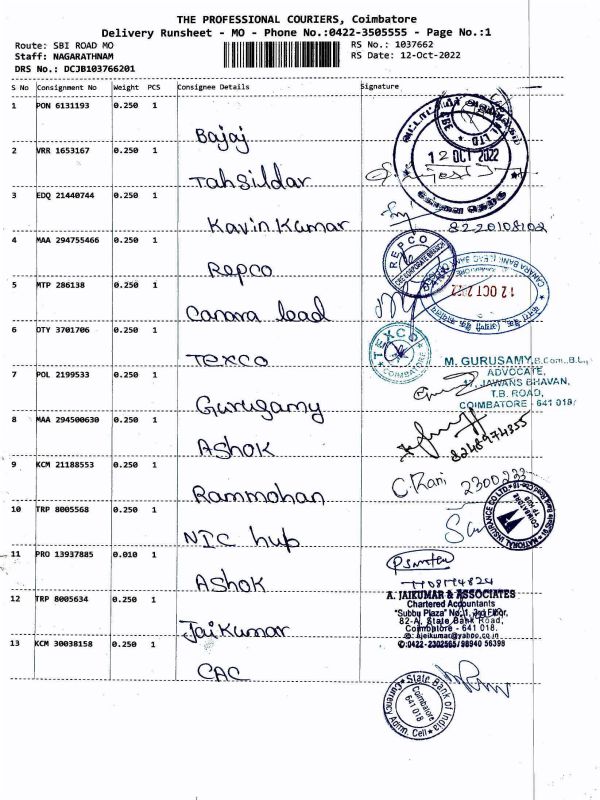 THE PROFESSIONAL COURIERS, Coimbatore
Delivery Runsheet - MO - Phone No.:0422-3505555 - Page No.:1
Route: SBI ROAD MO
RS No.: 1037662
Staff: NAGARATHNAM
RS Date: 12-Oct-2022
DRS No.: DCJB103766201
S No Consignment No Weight PCS Consignee Details Signature
1 PON 6131193 0.250 1
Bajaj
12 OCT 2022
2 VRR 1653167 0.250 1
Tahsildar
3 EDQ 21440744 0.250 1
Kavin Kumar
8220108102
4 MAA 294755466 0.250 1
REPCO
Repco
5 MTP 286138 0.250 1
12 OCT
Canara lead
6 DTY 3701706 0.250 1
TEXCO
COIMBATORE
Texco
7 POL 2199533 0.250 1
M. GURUSAMY, B.Com., B.L.,
ADVOCATE,
JAWANS BHAVAN,
T.B. ROAD,
COIMBATORE - 641 018
Gurusamy
8 MAA 294500630 0.250 1
8248974355
Ashok
9 KCM 21188553 0.250 1
C. Rani
Rammohan
10 TRP 8005568 0.250 1
NATIONAL INSURANCE CO LTD
COIMBATORE
NIC hub
11 PRO 13937885 0.010 1
Ashok
12 TRP 8005634 0.250 1
A. JAIKUMAR & ASSOCIATES
Chartered Accountants
"Subbu Plaza" No.1, 3rd Floor,
82-A, State Bank Road,
Coimbatore - 641 018.
Jaikumar
13 KCM 30038158 0.250 1
CAC
State Bank of India
Coimbatore
641 018
Currency Admn. Cell